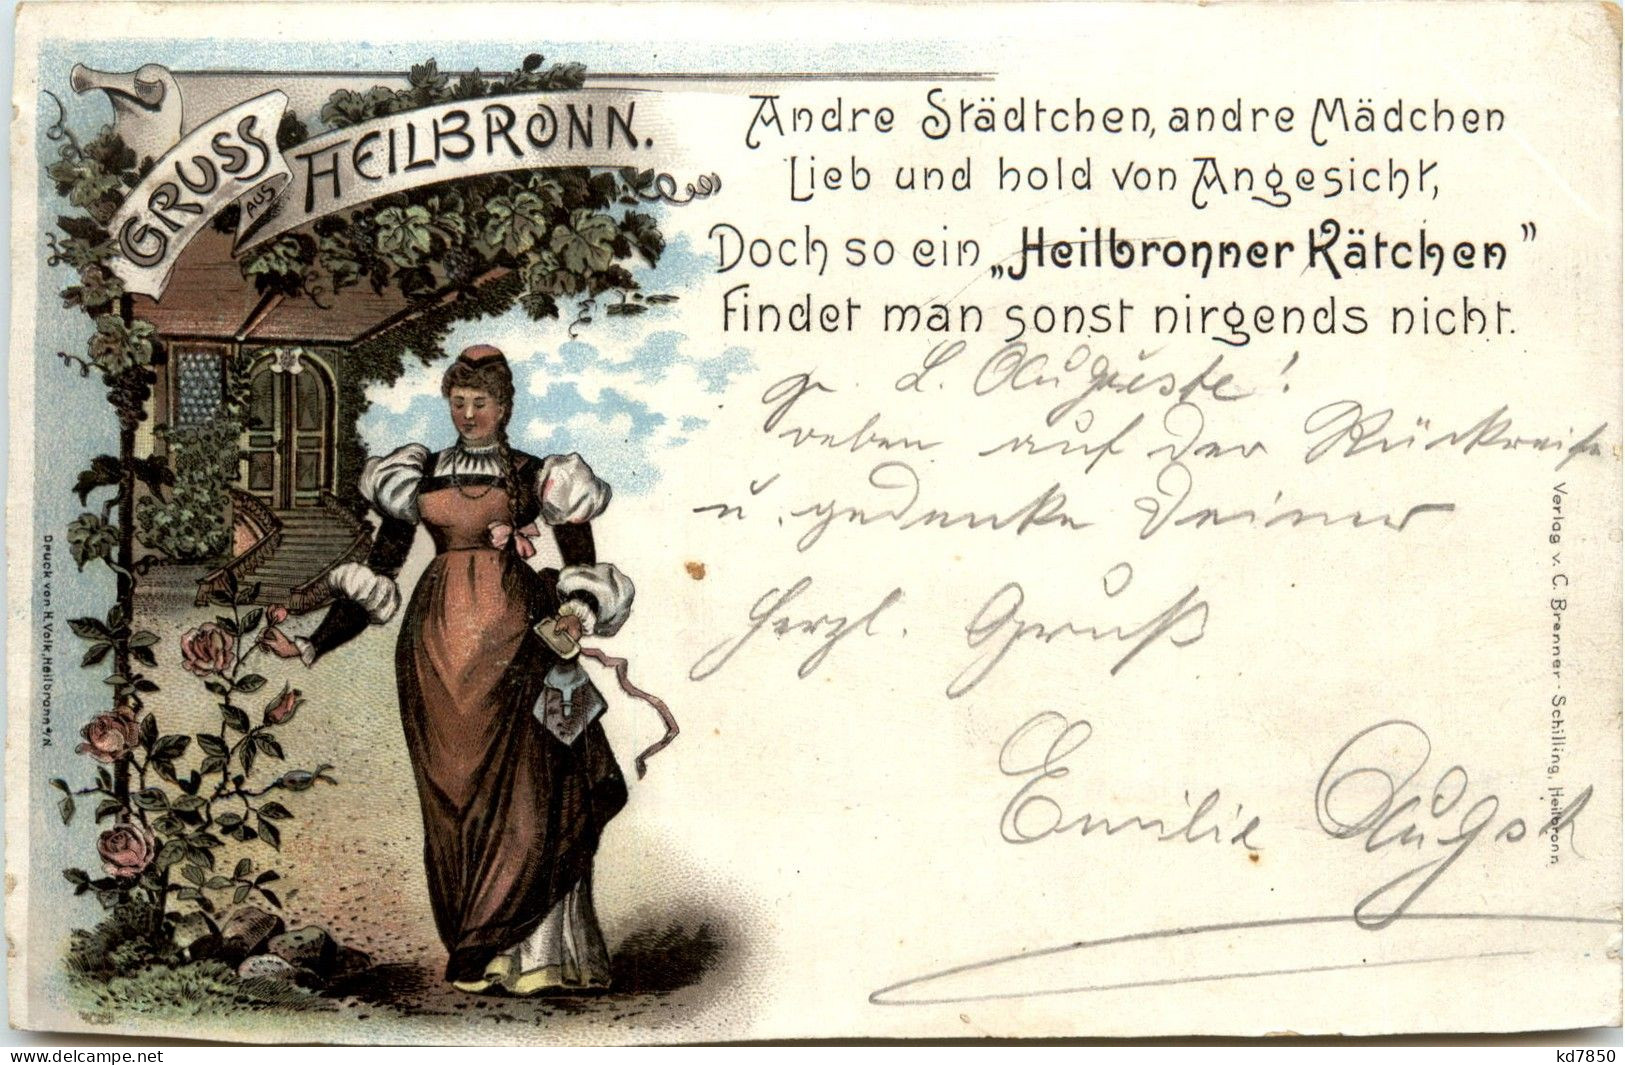 GRUSS
AUS
HEILBRONN.
Andre Städtchen, andre Mädchen
Lieb und hold von Angesicht,
Doch so ein „Heilbronner Kätchen”
Findet man sonst nirgends nicht.
L. Auguste!
auf der Rückreise
u. gedenke Deiner
Herzl. Gruß
Emilie August
Druck von H. Volk, Heilbronn a/N
Verlag v. C. Brenner-Schilling, Heilbronn
www.delcampe.net
kd7850